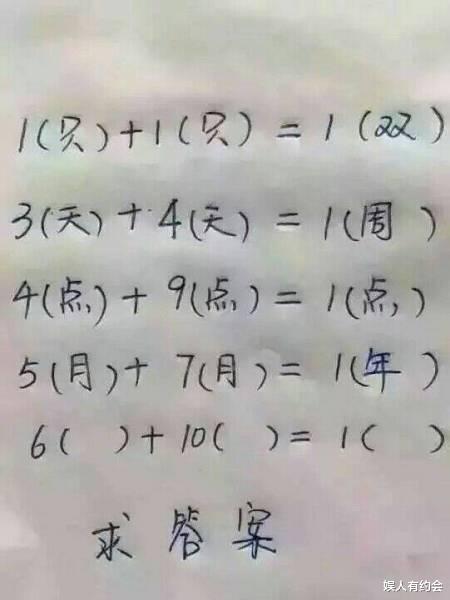 1(只)+1(只)=1(双)
3(天)+4(天)=1(周)
4(点)+9(点)=1(点)
5(月)+7(月)=1(年)
6( )+10( )=1( )
求答案
娱人有约会